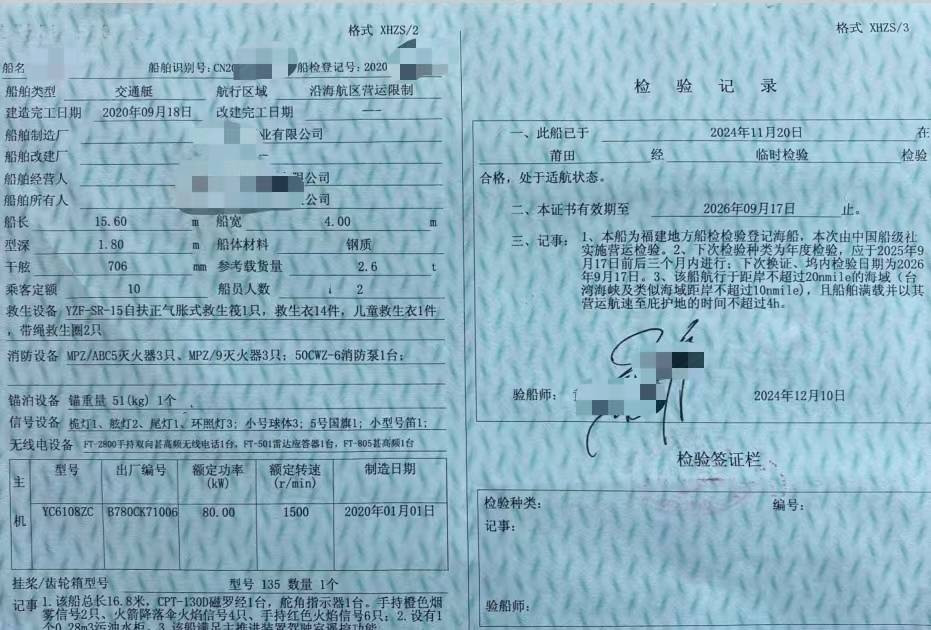 格式 XHZS/2
船名 船舶识别号:CN20 船检登记号:2020
船舶类型 交通艇 航行区域 沿海航区营运限制
建造完工日期 2020年09月18日 改建完工日期 ——
船舶制造厂 业有限公司
船舶改建厂
船舶经营人 限公司
船舶所有人 公司
船长 15.60 m 船宽 4.00 m
型深 1.80 m 船体材料 钢质
干舷 706 mm 参考载货量 2.6 t
乘客定额 10 船员人数 2
救生设备 YZF-SR-15自扶正气胀式救生筏1只，救生衣14件，儿童救生衣1件
，带绳救生圈2只
消防设备 MPZ/ABC5灭火器3只、MPZ/9灭火器3只；50CWZ-6消防泵1台；
锚泊设备 锚重量 51(kg) 1个
信号设备 桅灯1、舷灯2、尾灯1、环照灯3；小号球体3；5号国旗1；小型号笛1；
无线电设备 FT-2800手持双向甚高频无线电话1台，FT-501雷达应答器1台，FT-805甚高频1台
主机
型号 出厂编号 额定功率(kW) 额定转速(r/min) 制造日期
YC6108ZC B780CK71006 80.00 1500 2020年01月01日
挂桨/齿轮箱型号 型号 135 数量 1个
记事 1.该船总长16.8米，CPT-130D磁罗经1台，舵角指示器1台。手持橙色烟
雾信号2只、火箭降落伞火焰信号4只、手持红色火焰信号6只；2.设有1
个0.28m3污油水柜。3.该船满足主推进装置驾驶室遥控功能
格式 XHZS/3
检 验 记 录
一、此船已于 2024年11月20日 在
莆田 经 临时检验 检验
合格，处于适航状态。
二、本证书有效期至 2026年09月17日 止。
三、记事：1、本船为福建地方船检检验登记海船，本次由中国船级社
实施营运检验。2、下次检验种类为年度检验，应于2025年9
月17日前后三个月内进行；下次换证、坞内检验日期为2026
年9月17日。3、该船航行于距岸不超过20nmile的海域（台
湾海峡及类似海域距岸不超过10nmile），且船舶满载并以其
营运航速至庇护地的时间不超过4h。
验船师： 2024年12月10日
检验签证栏
检验种类： 编号：
记事：
验船师：